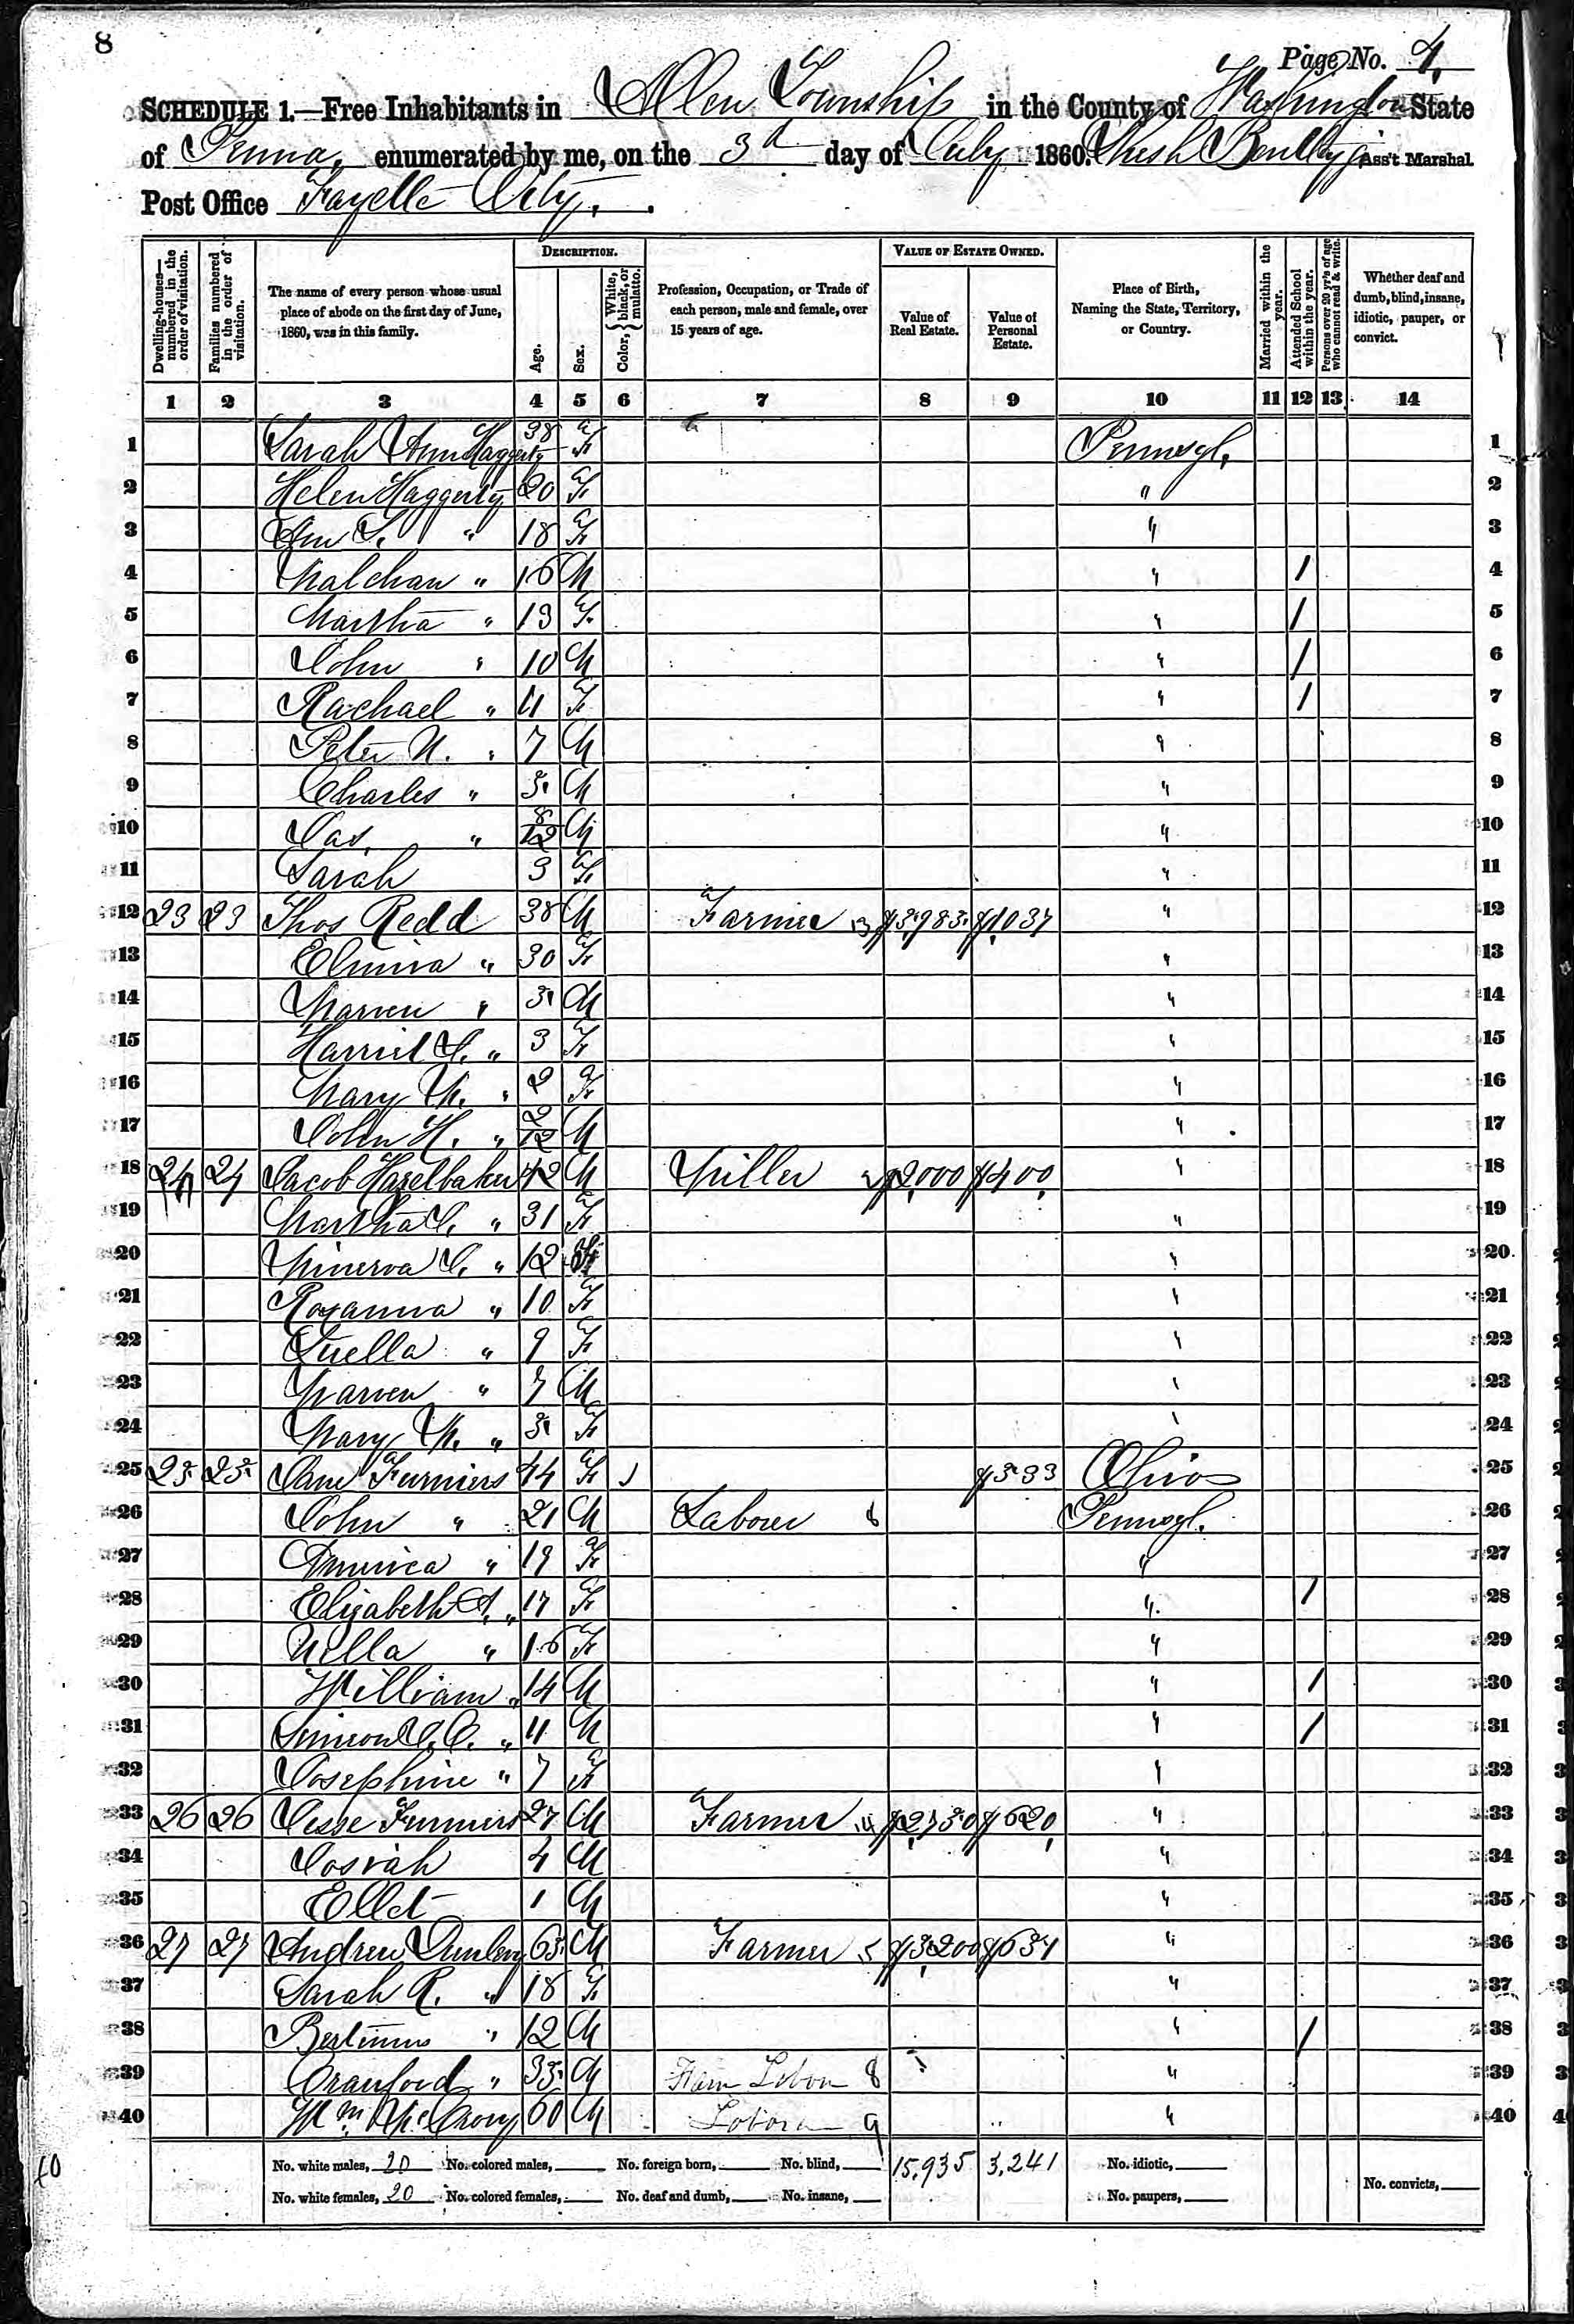 8
Page No. 4,
SCHEDULE 1.—Free Inhabitants in Allen Township in the County of Washington State
of Penna, enumerated by me, on the 3d day of July 1860. Ass't Marshal
Post Office Fayette City.
Dwelling-houses—numbered in the order of visitation.
Families numbered in the order of visitation.
The name of every person whose usual place of abode on the first day of June, 1860, was in this family.
DESCRIPTION.
Age.
Sex.
Color, { White, black, or mulatto.
Profession, Occupation, or Trade of each person, male and female, over 15 years of age.
VALUE OF ESTATE OWNED.
Value of Real Estate.
Value of Personal Estate.
Place of Birth, Naming the State, Territory, or Country.
Married within the year.
Attended School within the year.
Persons over 20 yr's of age who cannot read & write.
Whether deaf and dumb, blind, insane, idiotic, pauper, or convict.
1 2 3 4 5 6 7 8 9 10 11 12 13 14
1 Sarah Ann Haggerty 38 F Pennsyl, 1
2 Helen Haggerty 20 F " 2
3 Ann S. " 18 F " 3
4 " 16 M " / 4
5 Martha " 13 F " / 5
6 John " 10 M " / 6
7 Rachael " 11 F " / 7
8 Peter N. " 7 M " 8
9 Charles " 5 M " 9
10 Jas. " 8/12 M " 10
11 Sarah 3 F " 11
12 23 23 Thos Redd 38 M Farmer 1037 " 12
13 Elmira " 30 F " 13
14 " 5 M " 14
15 Harriet " 3 F " 15
16 Mary M. " 2 F " 16
17 John H. " 2/12 M " 17
18 24 24 Jacob Hazelbaker 42 M Miller $2,000 $400, " 18
19 Martha J. " 31 F " 19
20 Minerva J. " 12 F " 20
21 Roxanna " 10 F " 21
22 Luella " 9 F " 22
23 " 7 M " 23
24 Mary M. " 5 F " 24
25 25 25 Jane Furniers 44 F $533 Ohio 25
26 John " 21 M Labour 8 Pennsyl. 26
27 America " 19 F " 27
28 Elizabeth A. " 17 F " / 28
29 Nella " 16 F " 29
30 William " 14 M " / 30
31 Simon " 11 M " / 31
32 Josephine " 7 F " 32
33 26 26 Jesse Furniers 27 M Farmer $620, " 33
34 Josiah 4 M " 34
35 Ellet 1 M " 35
36 27 27 Andrew 65 M Farmer 5 $3,200 " 36
37 Sarah R. " 18 F " 37
38 " 12 M " / 38
39 Crawford " 35 M Farm Labor 8 " 39
40 Wm 60 M Labor 9 " 40
40
No. white males, 20 No. colored males, No. foreign born, No. blind, 15,935 3,241 No. idiotic,
No. white females, 20 No. colored females, No. deaf and dumb, No. insane, No. paupers, No. convicts,